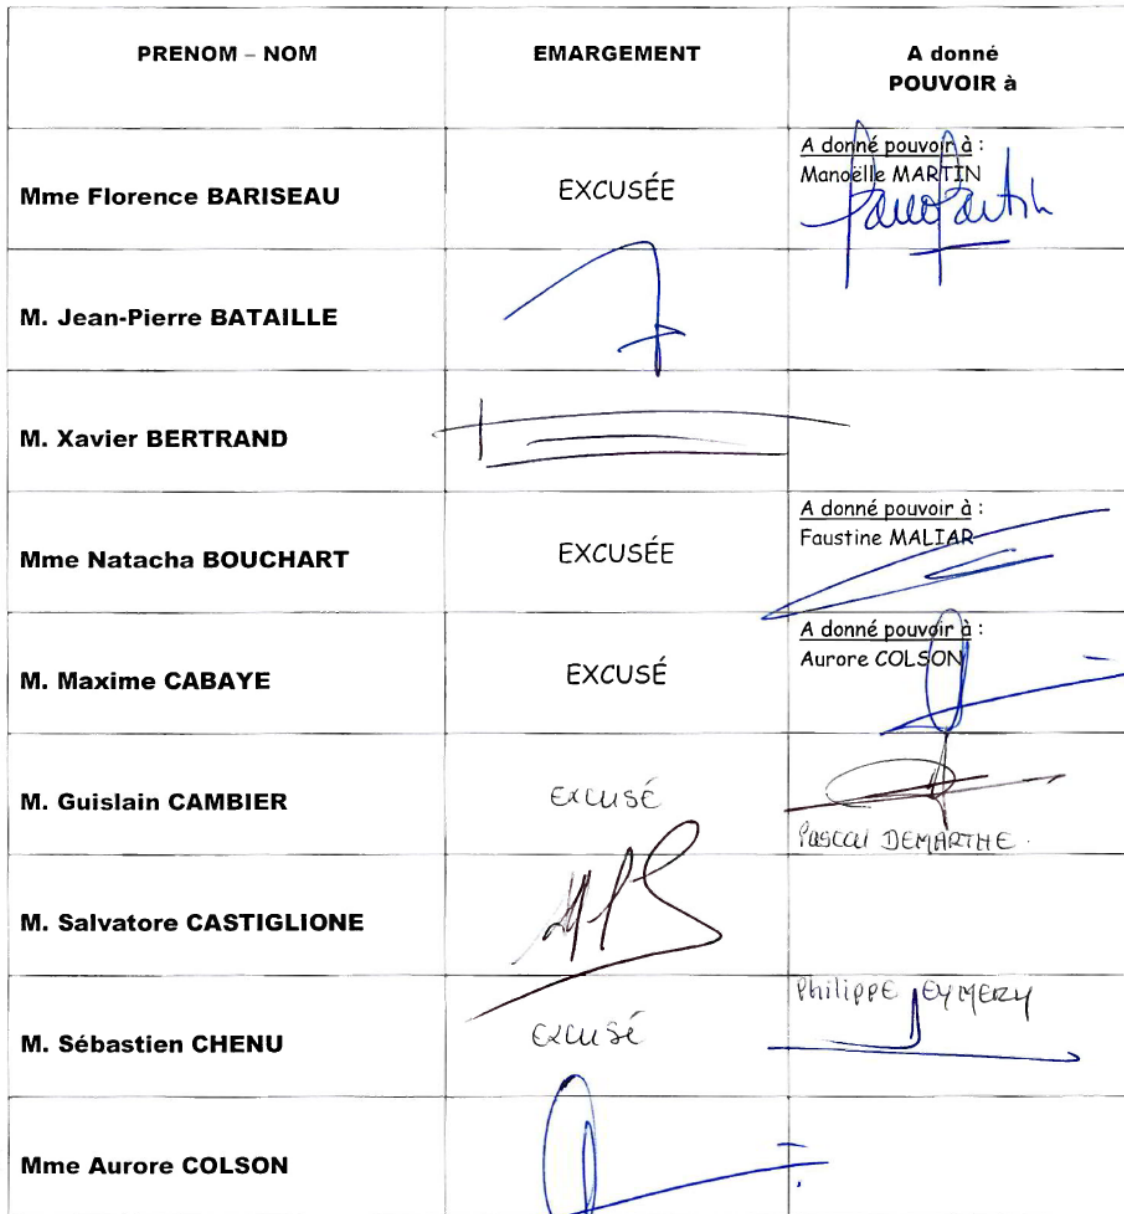 PRENOM – NOM EMARGEMENT A donné
POUVOIR à
Mme Florence BARISEAU EXCUSÉE A donné pouvoir à :
Manoëlle MARTIN
M. Jean-Pierre BATAILLE
M. Xavier BERTRAND
Mme Natacha BOUCHART EXCUSÉE A donné pouvoir à :
Faustine MALIAR
M. Maxime CABAYE EXCUSÉ A donné pouvoir à :
Aurore COLSON
M. Guislain CAMBIER EXCUSÉ
Pascal DEMARTHE.
M. Salvatore CASTIGLIONE
Philippe EYMERY
M. Sébastien CHENU EXCUSÉ
Mme Aurore COLSON